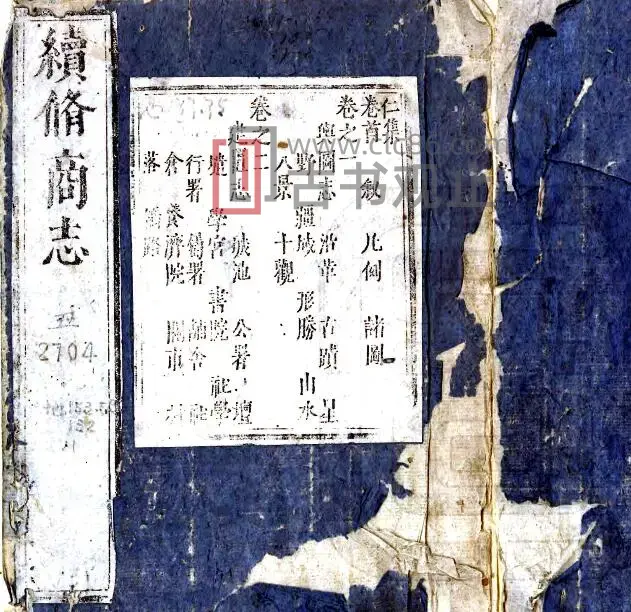 續脩商志
2704
仁集
卷首 敘 凡例 諸圖
卷之一
輿圖志 沿革 古蹟 星
野 疆域 形勝 山水
八景 十觀
卷之二
建置志 城池 公署 壇
壝 學宮 書院 社學
行署 舖舍 社
倉 養濟院 關市 村
落 橋路
古书观止